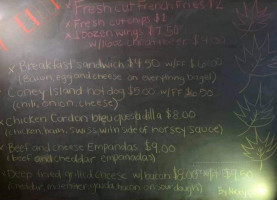 Fresh cut French Fries $2
x Fresh cut chips $1
x 1 dozen wings $7.50
x Breakfast sandwich $4.50 w/FF $6.00
(Bacon, egg and cheese on everything bagel)
Coney Island hot dog $5.00 w/FF $6.50
(chili, onion, cheese)
x Chicken Cordon bleu quesadilla $8.00
(chicken, ham, swiss, with side of horsey sauce)
x Beef and cheese Empanadas $9.00
(beef and cheddar empanadas)
Deep fried grilled cheese w/bacon $8.00 w/FF $9.50
bacon on sour dough)